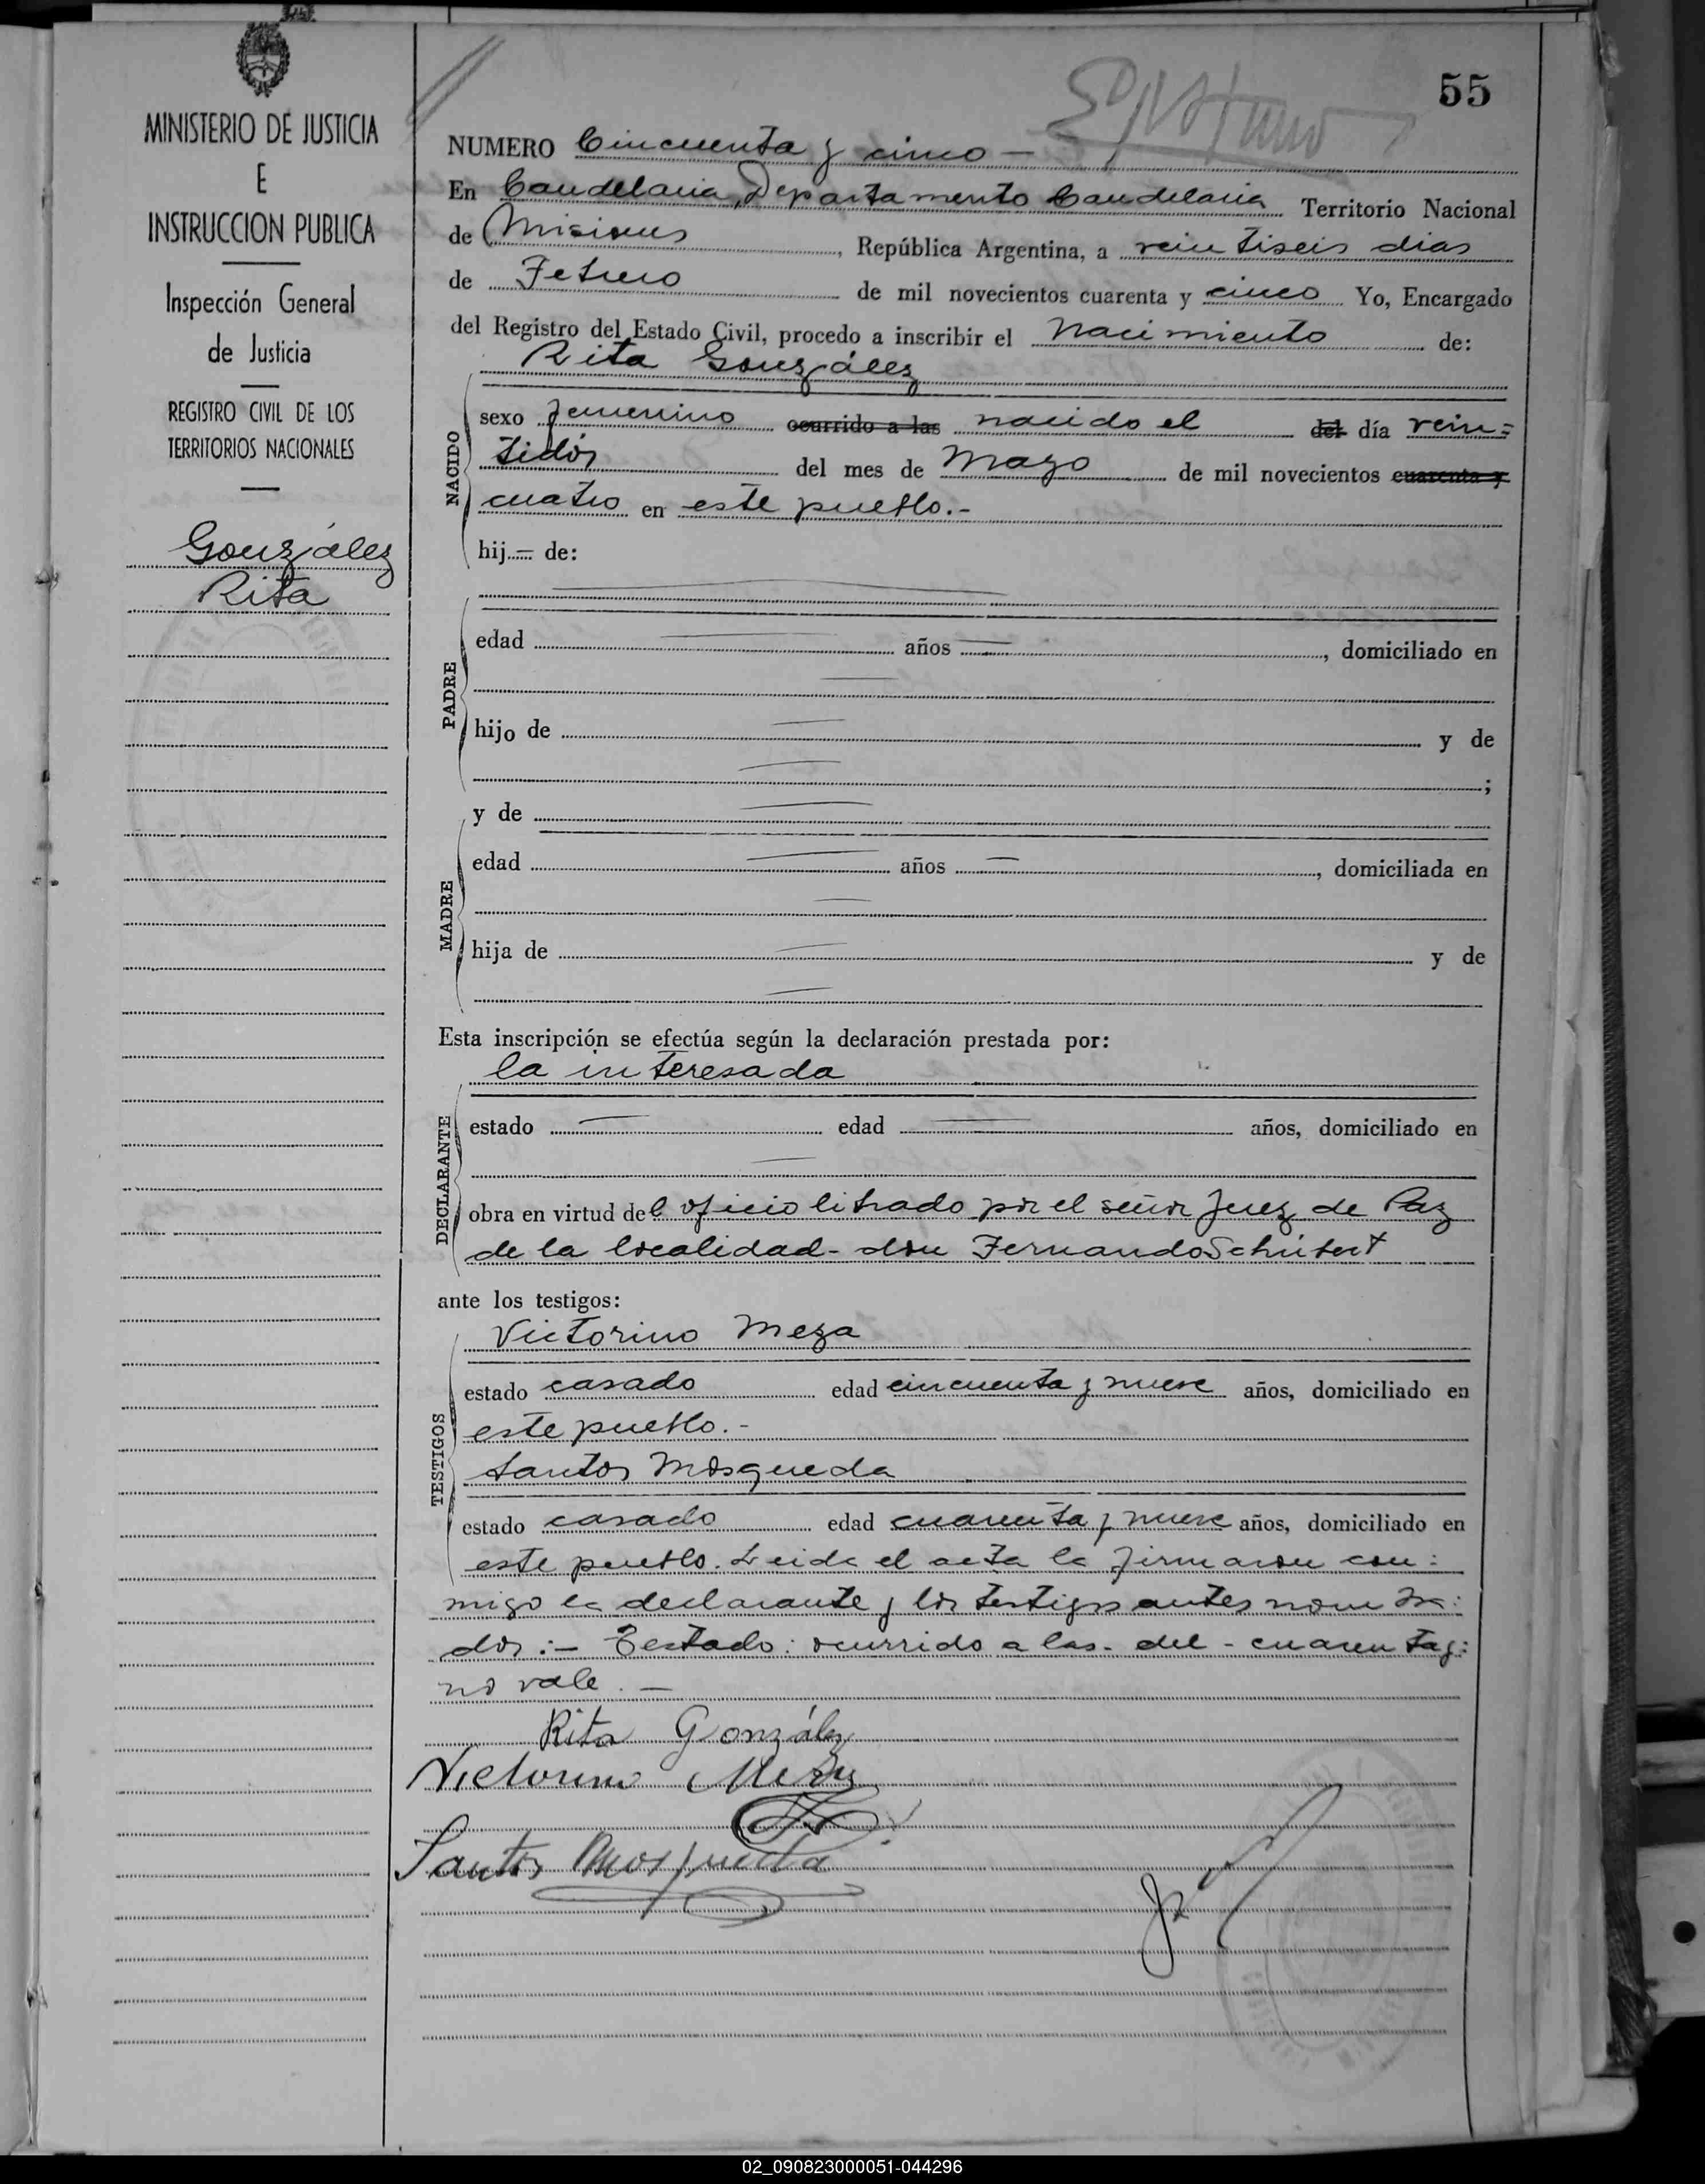 55
MINISTERIO DE JUSTICIA
E
INSTRUCCION PUBLICA
Inspección General
de Justicia
REGISTRO CIVIL DE LOS
TERRITORIOS NACIONALES
González
Rita
NUMERO Cincuenta y cinco —
En Candelaria, Departamento Candelaria Territorio Nacional
de Misiones, República Argentina, a veintiseis dias
de Febrero de mil novecientos cuarenta y cinco Yo, Encargado
del Registro del Estado Civil, procedo a inscribir el Nacimiento de:
Rita González
NACIDO
sexo femenino ocurrido a las nacido el del día vein=
tidós del mes de Mayo de mil novecientos cuarenta y
cuatro en este pueblo.-
hij — de:
PADRE
edad — años —, domiciliado en
hijo de — y de
— ;
y de —
MADRE
edad — años —, domiciliada en
hija de — y de
Esta inscripción se efectúa según la declaración prestada por:
la interesada
DECLARANTE
estado — edad — años, domiciliado en
obra en virtud del oficio librado por el señor Juez de Paz
de la localidad - don Fernando Schúbert
ante los testigos:
TESTIGOS
Victorino Meza
estado casado edad cincuenta y nueve años, domiciliado en
este pueblo.-
Santos Mosqueda
estado casado edad cuarenta y nueve años, domiciliado en
este pueblo. Leida el acta la firmaron con:
migo la declarante y los testigos antes nombra:
dos:- Testado: ocurrido a las - del - cuarenta y:
no vale. —
Rita González
Victorino Meza
Santos Mosqueda
02_090823000051-044296